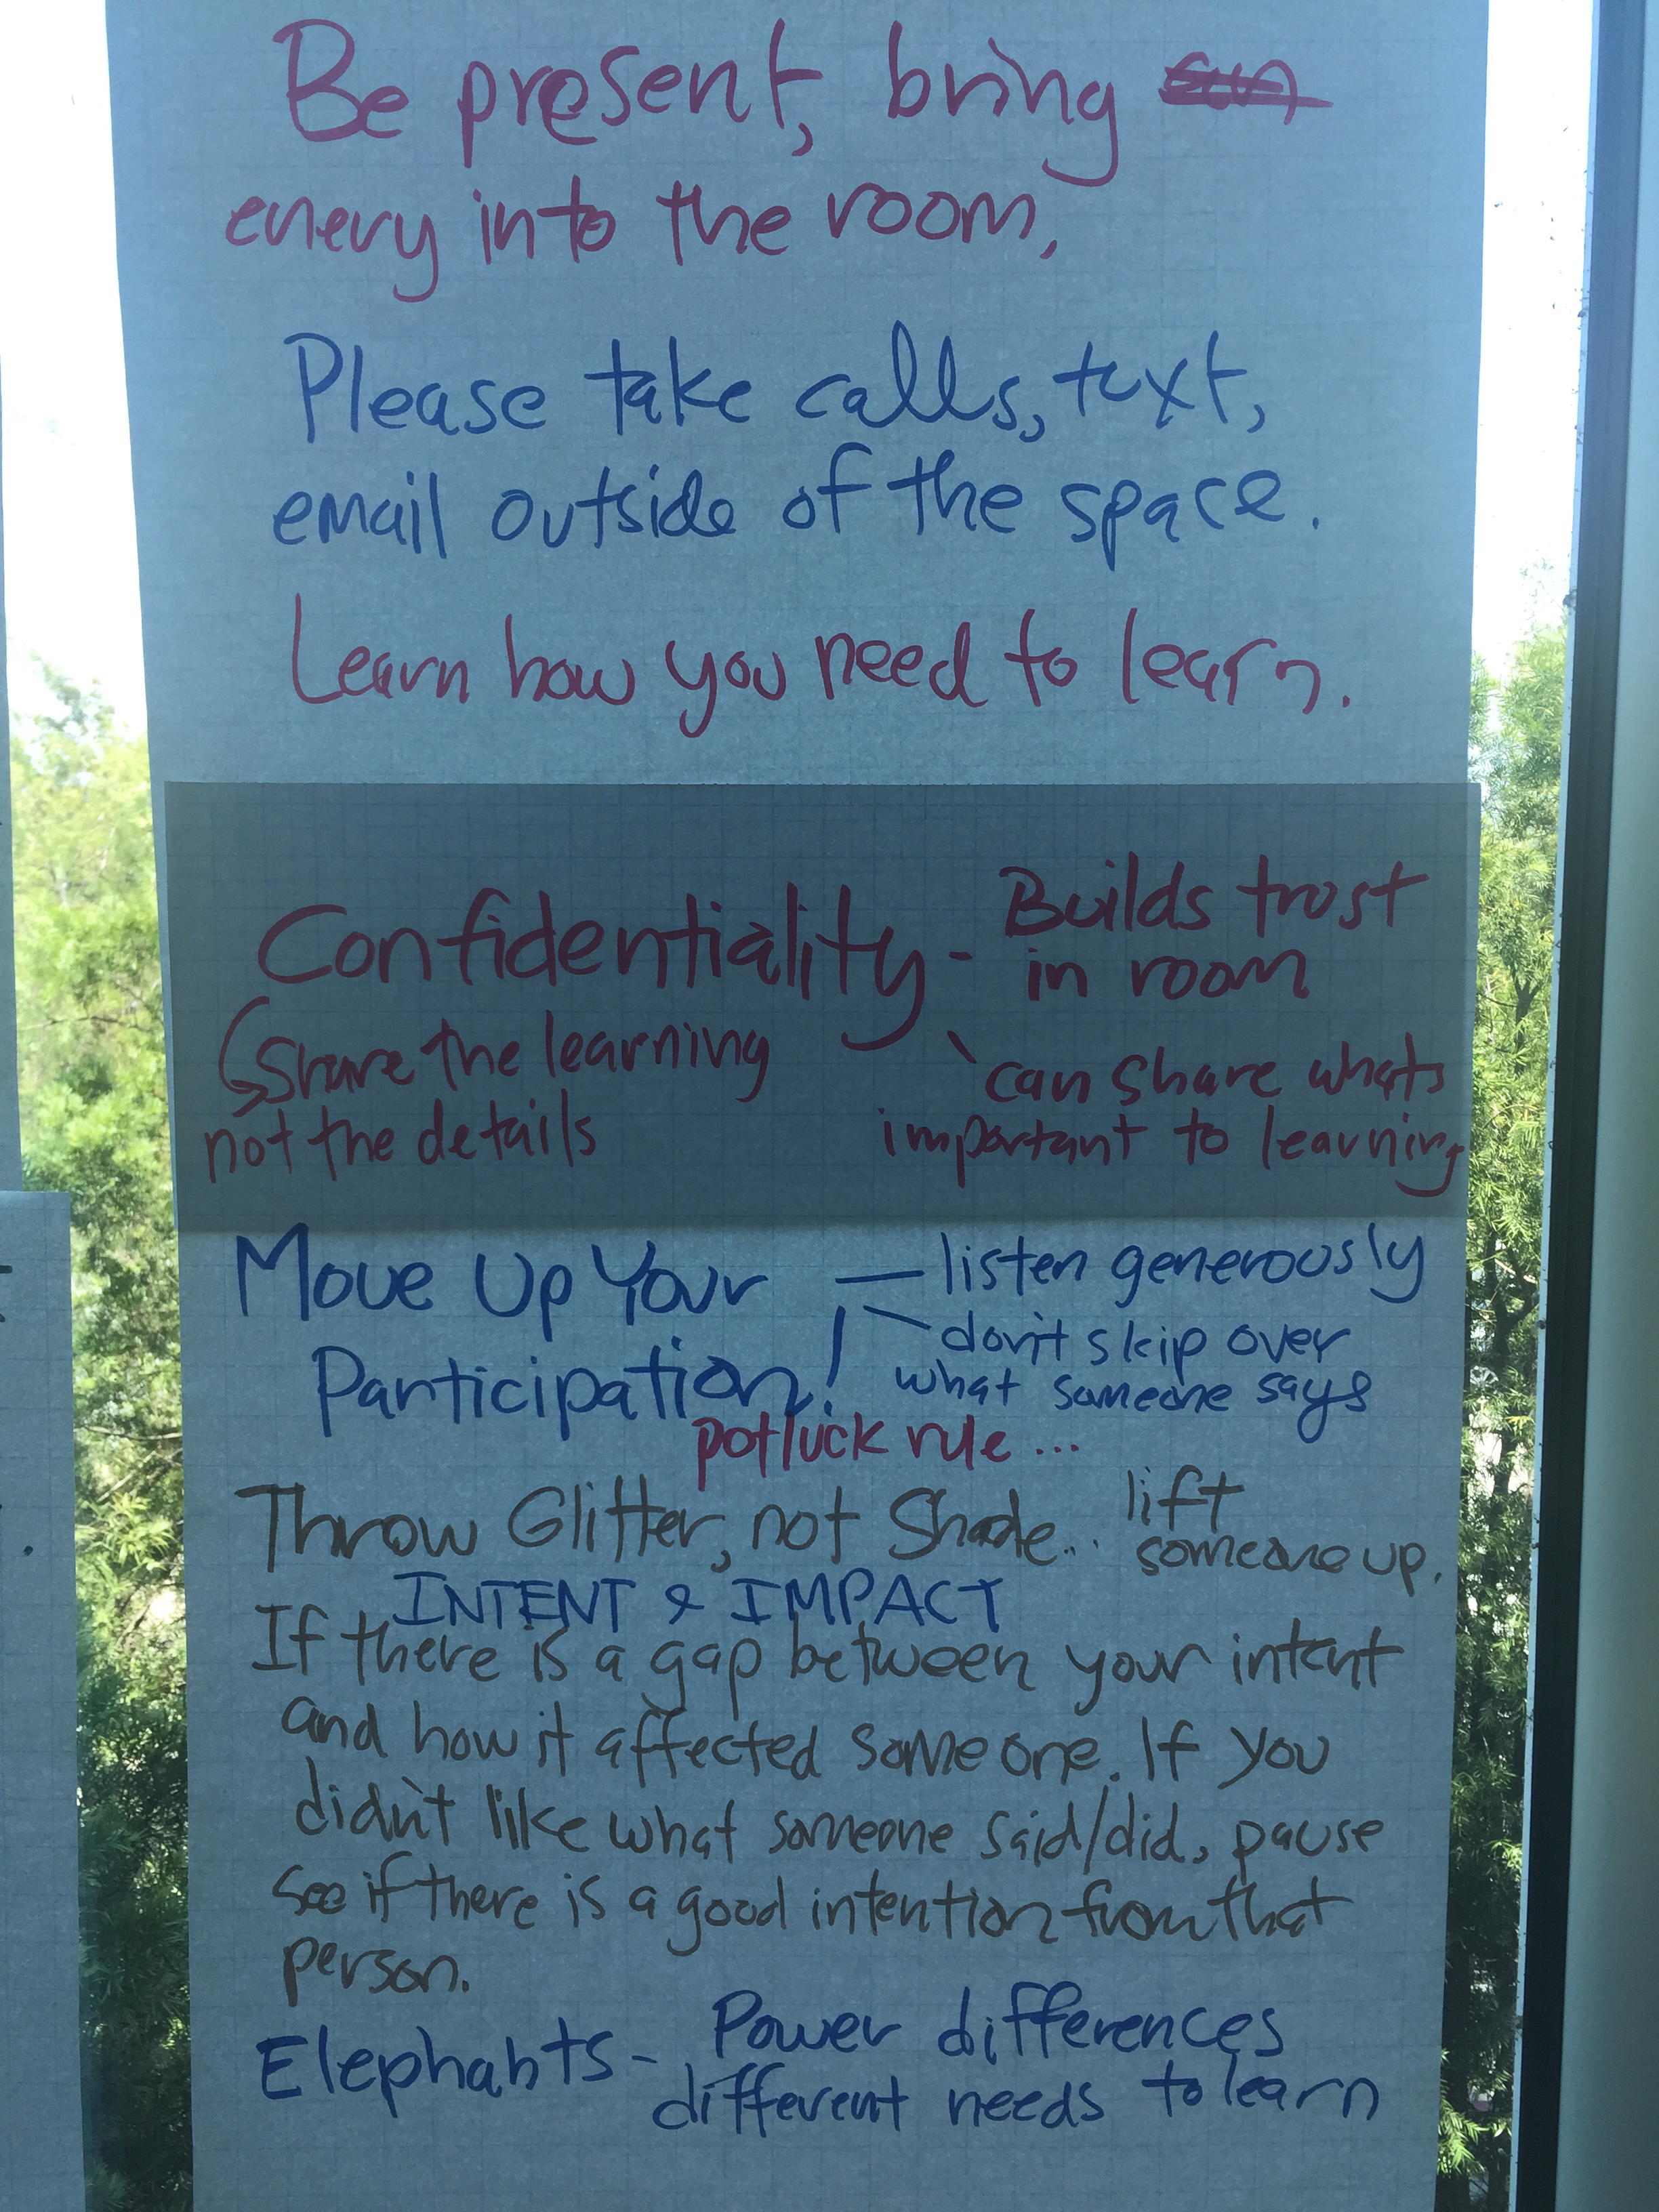 Be present, bring
enery into the room.
Please take calls, text,
email outside of the space.
Learn how you need to learn.
Confidentiality - Builds trust
in room
Share the learning
not the details
can share whats
important to learning
Move Up Your
Participation!
listen generously
don't skip over
what someone says
potluck rule ...
Throw Glitter, not Shade... lift
someone up.
INTENT & IMPACT
If there is a gap between your intent
and how it affected someone. If you
didn't like what someone said/did, pause
see if there is a good intention from that
person.
Elephants - Power differences
different needs to learn